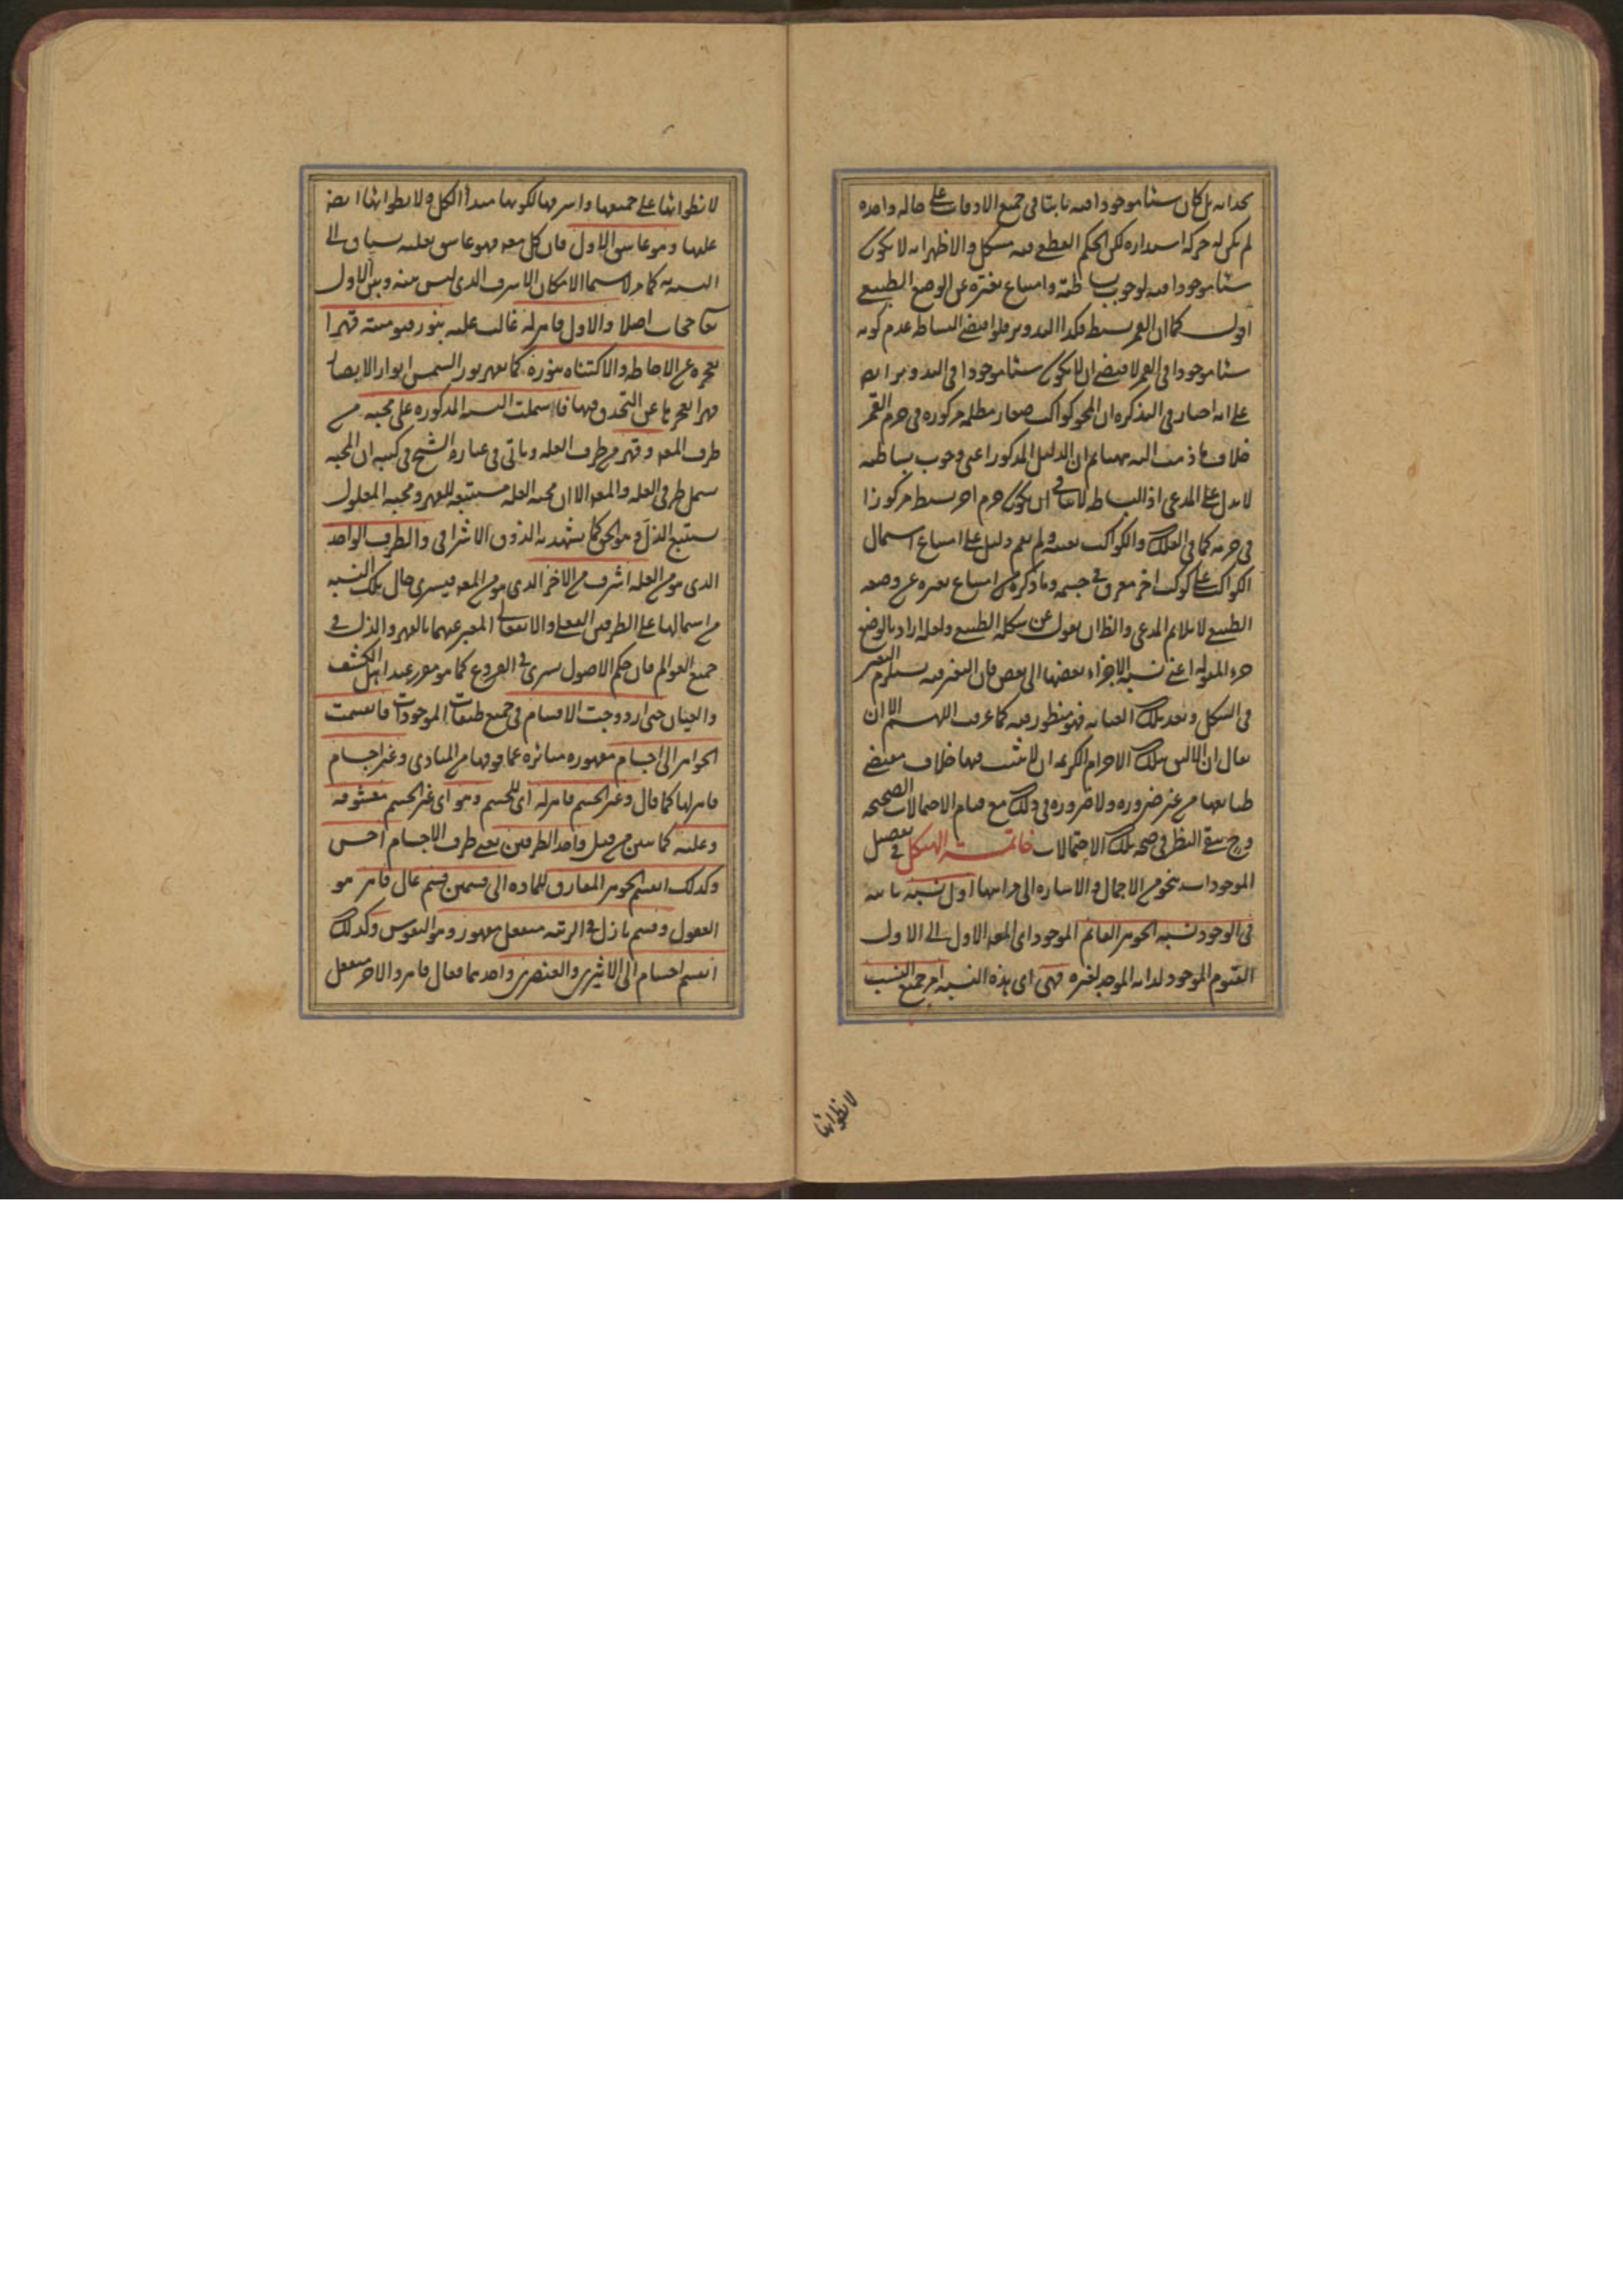 بحذائه بل كان شيئا موجودا فيه ثابتا في جميع الاوقات على حالة واحدة
لم يكن له حركة استدارة لكن الحكم القطعي فيه مشكل والاظهر انه لا يكون
شيئا موجودا فيه لوجوب بساطته وامتناع تغيره عن الوضع الطبيعي
اقول كما ان القمر بسيط فكذا التدوير فلو اقتضى البساطة عدم كونه
شيئا موجودا في القمر لاقتضى ان لا يكون شيئا موجودا في التدوير ايضا
على انه اختار في التذكرة ان المحو كواكب صغار مظلمة مركوزة في جرم القمر
خلاف ما ذهب اليه ههنا ثم ان الدليل المذكور اعني وجوب بساطته
لا يدل على المدعى اذ البساطة لا تنافي ان يكون جرم اخر بسيط مركوزا
في جرمه كما في الفلك والكواكب بعينه ولم يقم دليل على امتناع اشتمال
الكواكب على كوكب اخر مغرق في جسمه وما ذكره من امتناع تغيره عن وضعه
الطبيعي لا يلائم المدعى والظاهر ان يقول عن شكله الطبيعي ولعله اراد بالوضع
جزء المقولة اعني نسبة الاجزاء بعضها الى بعض فان التغير فيه يستلزم التغير
في الشكل وبعد تلك العناية فهو منظور فيه كما عرفت اللهم الا ان
يقال ان اللائق بتلك الاجرام الكريمة ان لا يثبت فيها خلاف مقتضى
طبائعها من غير ضرورة ولا ضرورة في ذلك مع قيام الاحتمالات الصحيحة
وح يبقى النظر في صحة تلك الاحتمالات خاتمة الهيكل في تفصيل
الموجودات بنحو من الاجمال والاشارة الى مراتبها اول نسبة ثابتة
في الوجود نسبة الجوهر القائم الموجود اى المعلول الاول الى الاول
القيوم الموجود لذاته الموجد لغيره فهى اى هذه النسبة ام جميع النسب
لانطوائها
لانطوائها على جميعها واشرفها لكونها مبدأ الكل ولانطوائها ايضا
عليها وهو عاشق الاول فان كل معلول فهو عاشق لعلته سياق الى
التشبه به كما مر لا سيما الامكان الاشرف الذى ليس بينه وبين الاول
تعالى حجاب اصلا والاول قاهر له غالب عليه بنور قيوميته قهرا
يعجزه عن الاحاطة والاكتناه بنوره كما يقهر نور الشمس انوار الابصار
قهرا يعجزها عن التحدق فيها فاشتملت النسبة المذكورة على محبة من
طرف المعلول وقهر من طرف العلة وياتى في عبارة الشيخ في كتبه ان المحبة
يشمل طرفى العلة والمعلول الا ان محبة العلة مستتبعة للقهر ومحبة المعلول
يستتبع الذل وهو الحق كما يشهد به الذوق الاشراقى والطرف الواحد
الذى هو من العلة اشرف من الاخر الذى هو من المعلول فيسرى حال تلك النسبة
من اشتمالها على الطرفين الفعلى والانفعالى المعبر عنهما بالقهر والذل في
جميع العوالم فان حكم الاصول يسرى في الفروع كما هو مقرر عند اهل الكشف
والعيان حتى ازدوجت الاقسام في جميع طبقات الموجودات فانقسمت
الجواهر الى اجسام مقهورة متاثرة عما فوقها من المبادى وغير اجسام
قاهر لها كما قال وغير الجسم قاهر له اى للجسم وهو اى غير الجسم معشوقه
وعلته كما تبين من قبل واحد الطرفين يعنى طرف الاجسام اخس
وكذلك انقسم الجوهر المفارق للمادة الى قسمين قسم عال قاهر هو
العقول وقسم نازل في الرتبة منفعل مقهور وهو النفوس وكذلك
انقسم اجسام الى الاثيرى والعنصرى واحدهما فعال قاهر والاخر منفعل